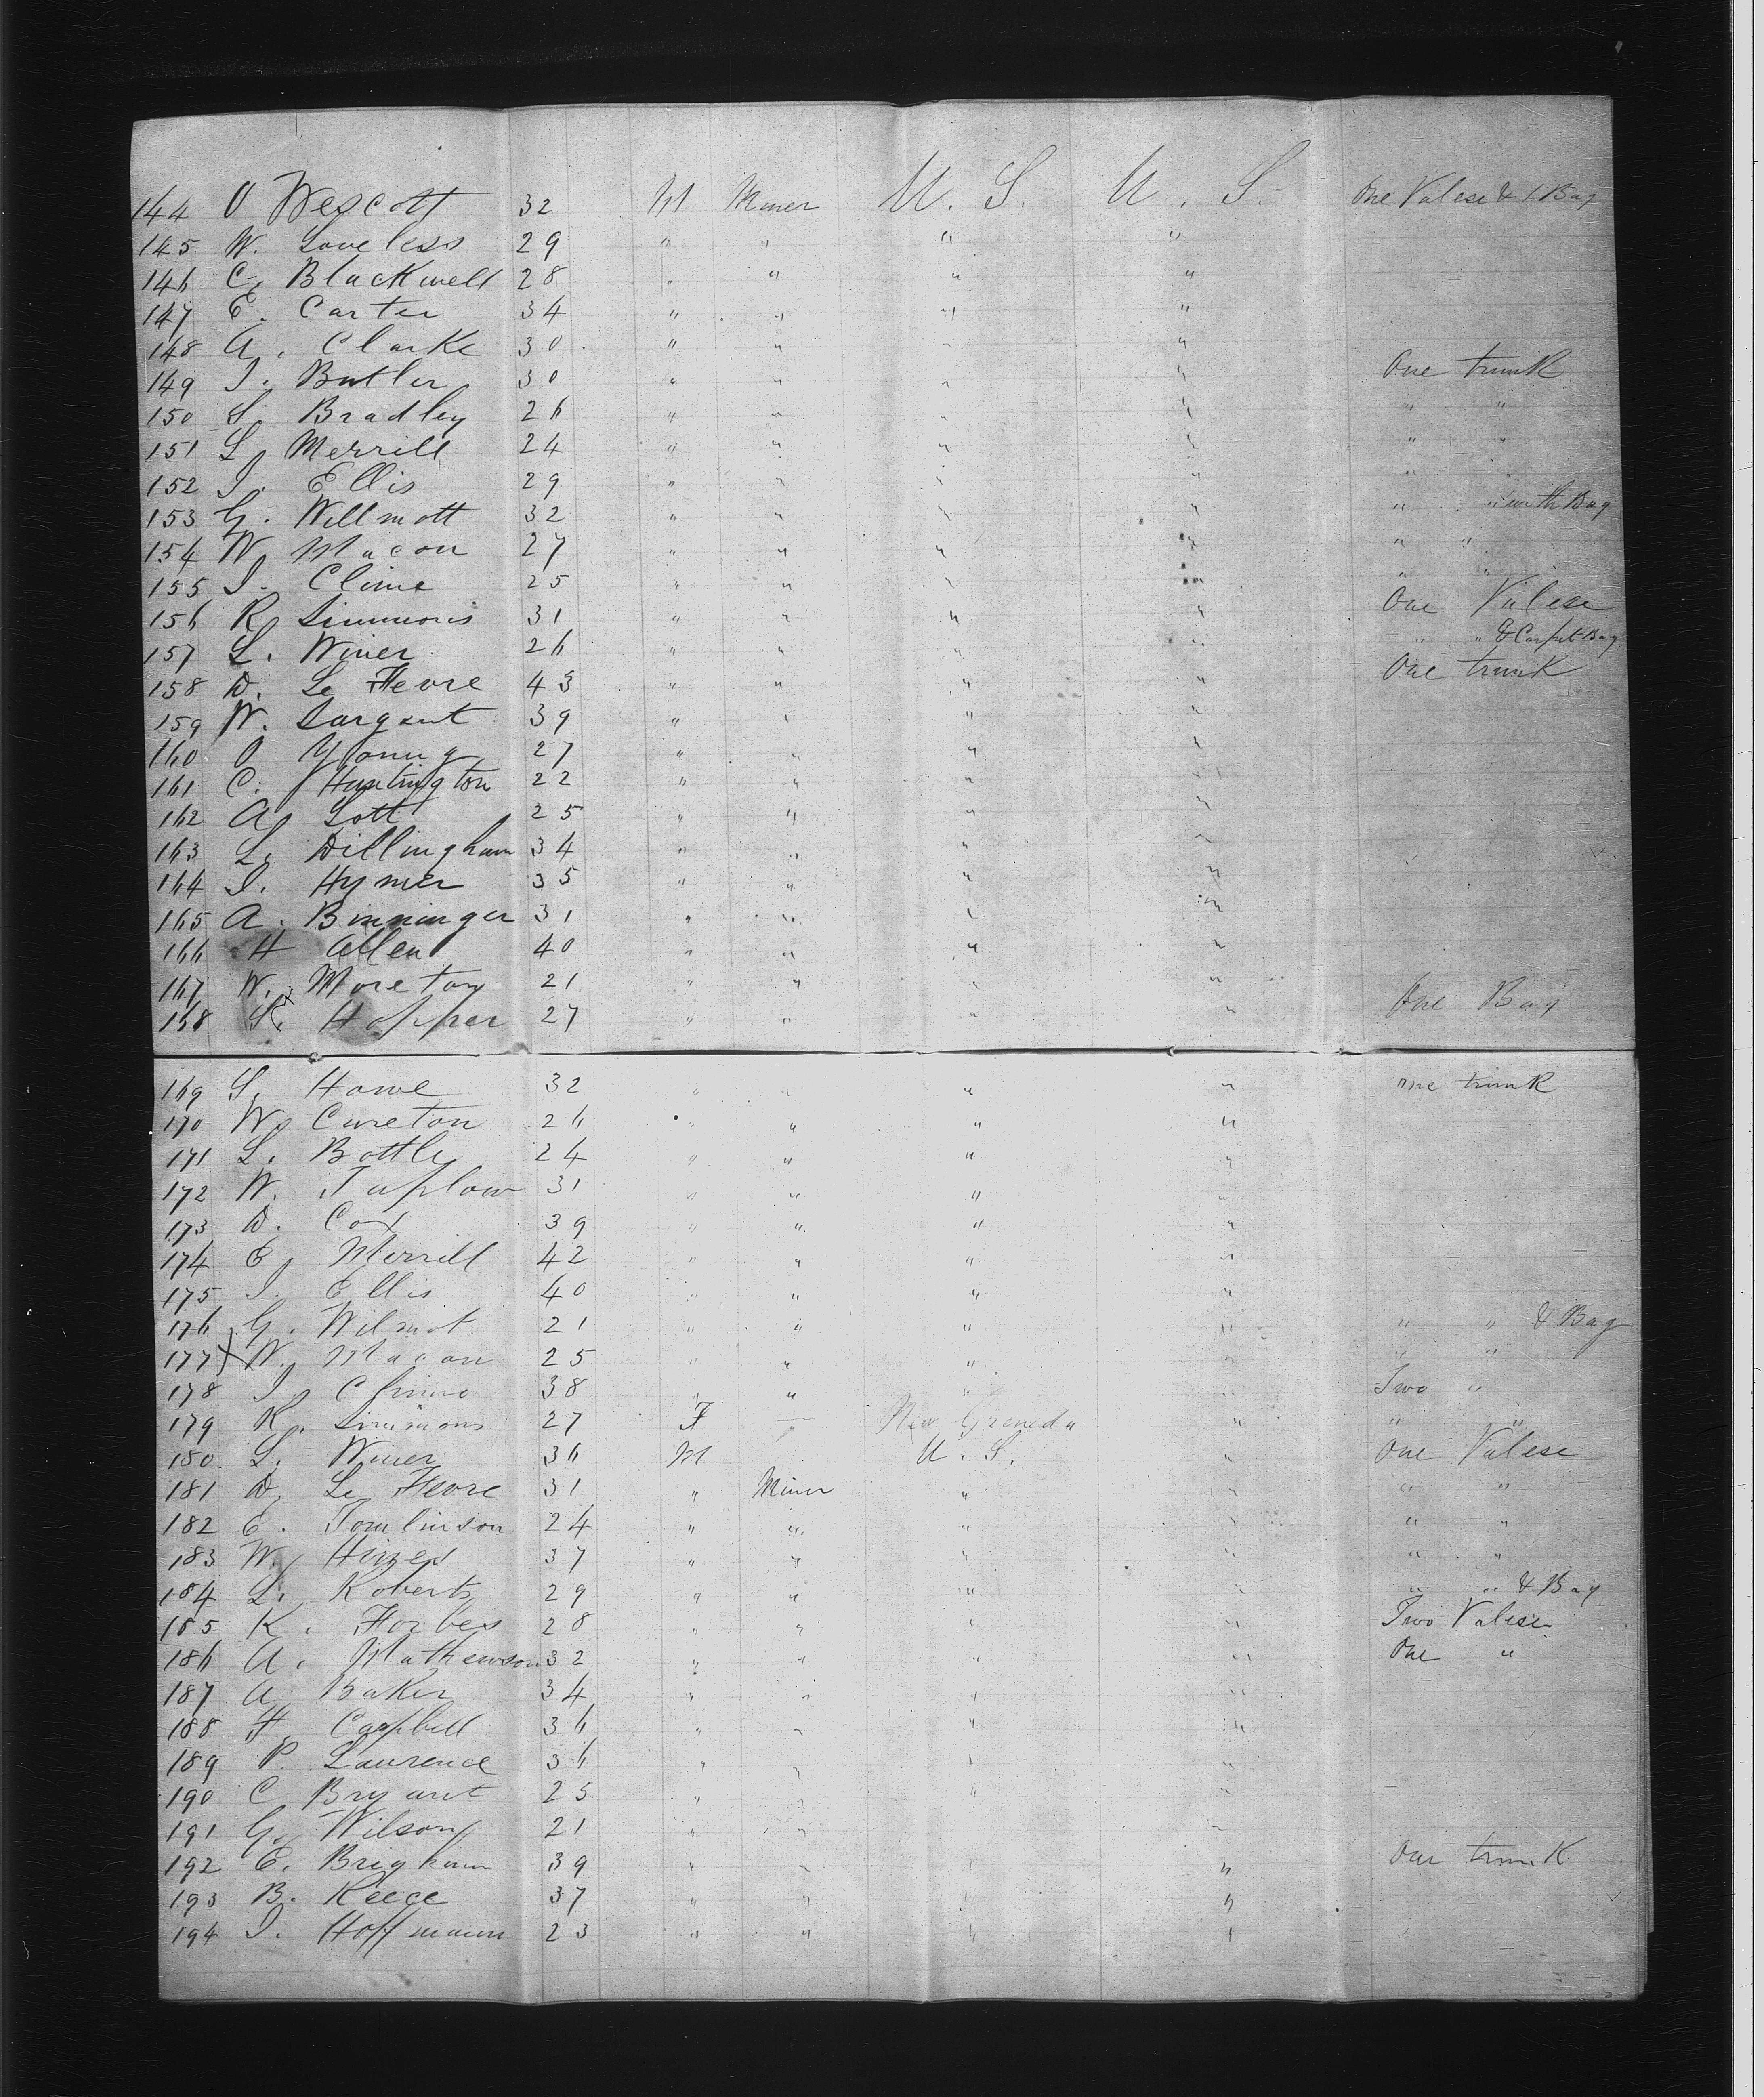 144 O Wescott 32 M Miner U. S. U. S. One Valese & 1 Bag
145 W. Loveless 29 " " " "
146 C. Blackwell 28 " " " "
147 E. Carter 34 " " " "
148 A. Clarke 30 " " " "
149 I. Butler 30 " " " " One trunk
150 S. Bradley 26 " " " " " "
151 L. Merrill 24 " " " " " "
152 I. Ellis 29 " " " " " "
153 G. Willmott 32 " " " " " " with Bag
154 W. Macon 27 " " " " " "
155 I. Clime 25 " " " " " "
156 R. Simmons 31 " " " " One Valese
157 L. Winer 26 " " " " " " & Carpet Bag
158 D. Le Fevre 43 " " " " One trunk
159 W. Sargent 39 " " " "
160 O Young 27 " " " "
161 C. Huntington 22 " " " "
162 A. Lott 25 " " " "
163 L. Dillingham 34 " " " "
164 I. Hymer 35 " " " "
165 A. Binninger 31 " " " "
166 H Allen 40 " " " "
167 W. Moreton 21 " " " "
158 S. Hopper 27 " " " " One Bag
169 S. Howe 32 " " " " One trunk
170 W. Cureton 26 " " " "
171 L. Bottle 24 " " " "
172 W. Taplow 31 " " " "
173 D. Cox 39 " " " "
174 E. Merrill 42 " " " "
175 I. Ellis 40 " " " "
176 G. Wilmot. 21 " " " " " " & Bag
177 W. Macon 25 " " " " " "
178 I. 38 " " " " Two "
179 R. Simmons 27 F — New Grenada " " "
180 L. Winer 36 M U. S. " One Valese
181 D. Le Fevre 31 " Miner " " " "
182 E. Tomlinson 24 " " " " " "
183 W. Hines 37 " " " " " "
184 L. Roberts 29 " " " " " " & Bag
185 K. Forbes 28 " " " " Two Valese
186 A. Mathewson 32 " " " " One "
187 A Baker 34 " " " "
188 H. Campbell 36 " " " "
189 P. Lawrence 36 " " " "
190 C Bryant 25 " " " "
191 G. Wilson 21 " " " "
192 E. Brigham 39 " " " " One trunk
193 B. Reece 37 " " " "
194 I. Hoffmann 23 " " " "